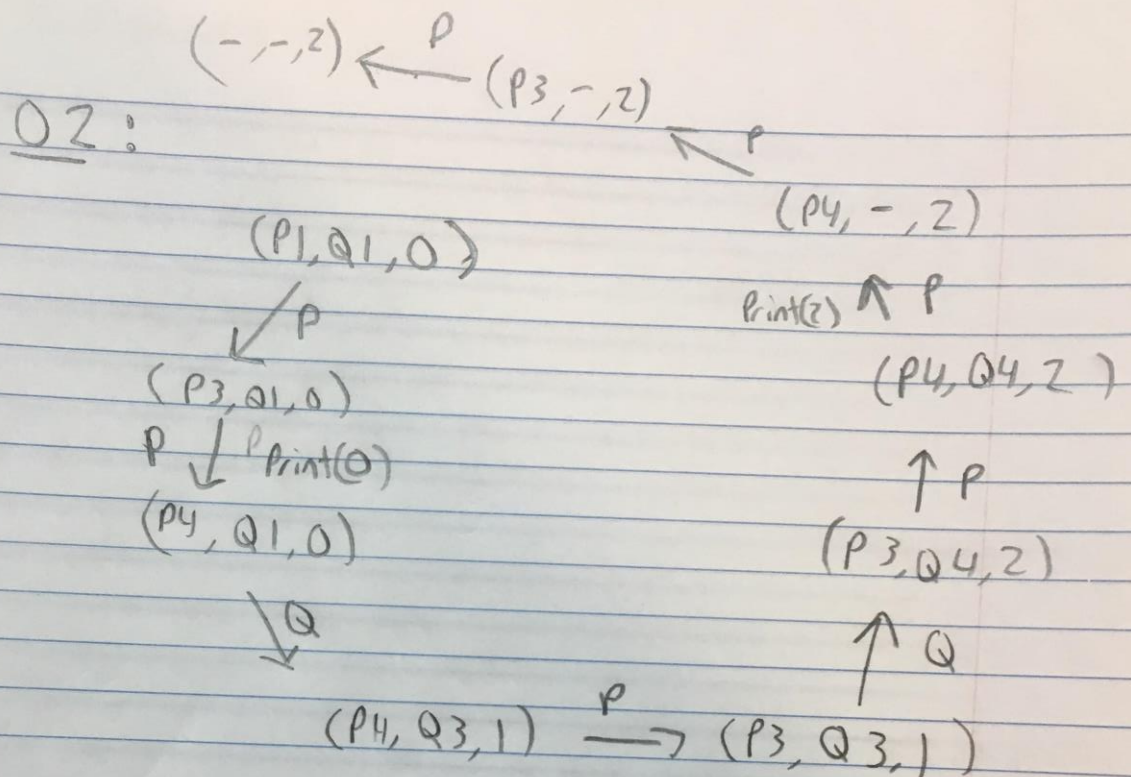 (-,-,2) P (P3,-,2)
02:
P
(P4,-,2)
(P1,Q1,0)
Print(2) P
P
(P4,Q4,2)
(P3,Q1,0)
P Print(0)
P
(P4,Q1,0)
(P3,Q4,2)
Q
Q
(P4,Q3,1) P (P3,Q3,1)